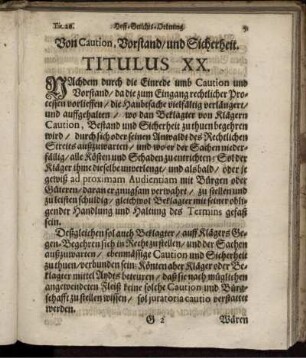 Tit. 20. Hoff-Gerichts-Ordnung.
Von Caution, Vorstand/ und Sicherheit.
TITULUS XX.
NAchdem durch die Einrede umb Caution und
Vorstand/ da die zum Eingang rechtlicher Pro-
cessen vorlieffen/ die Hauptsache vielfältig verlängert/
und auffgehalten/ wo dan Beklagter von Klägern
Caution, Bestand und Sicherheit zu thuen begehren
wird/ durch sich oder seinen Anwald des Rechtlichen
Streits außzuwarten/ und wo er der Sachen nieder-
fällig/ alle Kösten und Schaden zu entrichten: Sol der
Kläger ihme dieselbe unverlengt/ und alsbald/ oder je
gewiß ad proximam Audientiam mit Bürgen oder
Güteren/ daran er gnugsam verwahrt/ zu stellen und
zu leisten schuldig/ gleichwol Beklagter mit seiner obli-
gender Handlung und Haltung des Termins gefast
sein.
Deßgleichen sol auch Beklagter/ auff Klägers Ge-
gen-Begehren sich in Recht zu stellen/ und der Sachen
außzuwarten/ ebenmässige Caution und Sicherheit
zu thuen/ verbunden sein: Könten aber Kläger oder Be-
klagter mittel Aydts beteuren/ daß sie nach müglichen
angewendeten Fleiß keine solche Caution und Bürg-
schafft zu stellen wissen/ sol juratoria cautio verstattet
werden.
G 2 Wären